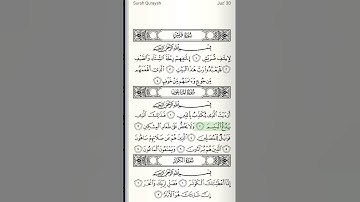 Surah Quraysh Juz' 30
سُورَةُ قُرَيْشٍ
بِسْمِ ٱللَّهِ ٱلرَّحْمَٰنِ ٱلرَّحِيمِ
لِإِيلَٰفِ قُرَيْشٍ ١ إِۦلَٰفِهِمْ رِحْلَةَ ٱلشِّتَآءِ وَٱلصَّيْفِ
٢ فَلْيَعْبُدُوا۟ رَبَّ هَٰذَا ٱلْبَيْتِ ٣ ٱلَّذِىٓ أَطْعَمَهُم
مِّن جُوعٍ وَءَامَنَهُم مِّنْ خَوْفٍۭ ٤
سُورَةُ ٱلْمَاعُونِ
بِسْمِ ٱللَّهِ ٱلرَّحْمَٰنِ ٱلرَّحِيمِ
أَرَءَيْتَ ٱلَّذِى يُكَذِّبُ بِٱلدِّينِ ١ فَذَٰلِكَ ٱلَّذِى
يَدُعُّ ٱلْيَتِيمَ ٢ وَلَا يَحُضُّ عَلَىٰ طَعَامِ ٱلْمِسْكِينِ ٣
فَوَيْلٌ لِّلْمُصَلِّينَ ٤ ٱلَّذِينَ هُمْ عَن صَلَاتِهِمْ سَاهُونَ
٥ ٱلَّذِينَ هُمْ يُرَآءُونَ ٦ وَيَمْنَعُونَ ٱلْمَاعُونَ ٧
سُورَةُ ٱلْكَوْثَرِ
بِسْمِ ٱللَّهِ ٱلرَّحْمَٰنِ ٱلرَّحِيمِ
إِنَّآ أَعْطَيْنَٰكَ ٱلْكَوْثَرَ ١ فَصَلِّ لِرَبِّكَ وَٱنْحَرْ ٢
إِنَّ شَانِئَكَ هُوَ ٱلْأَبْتَرُ ٣